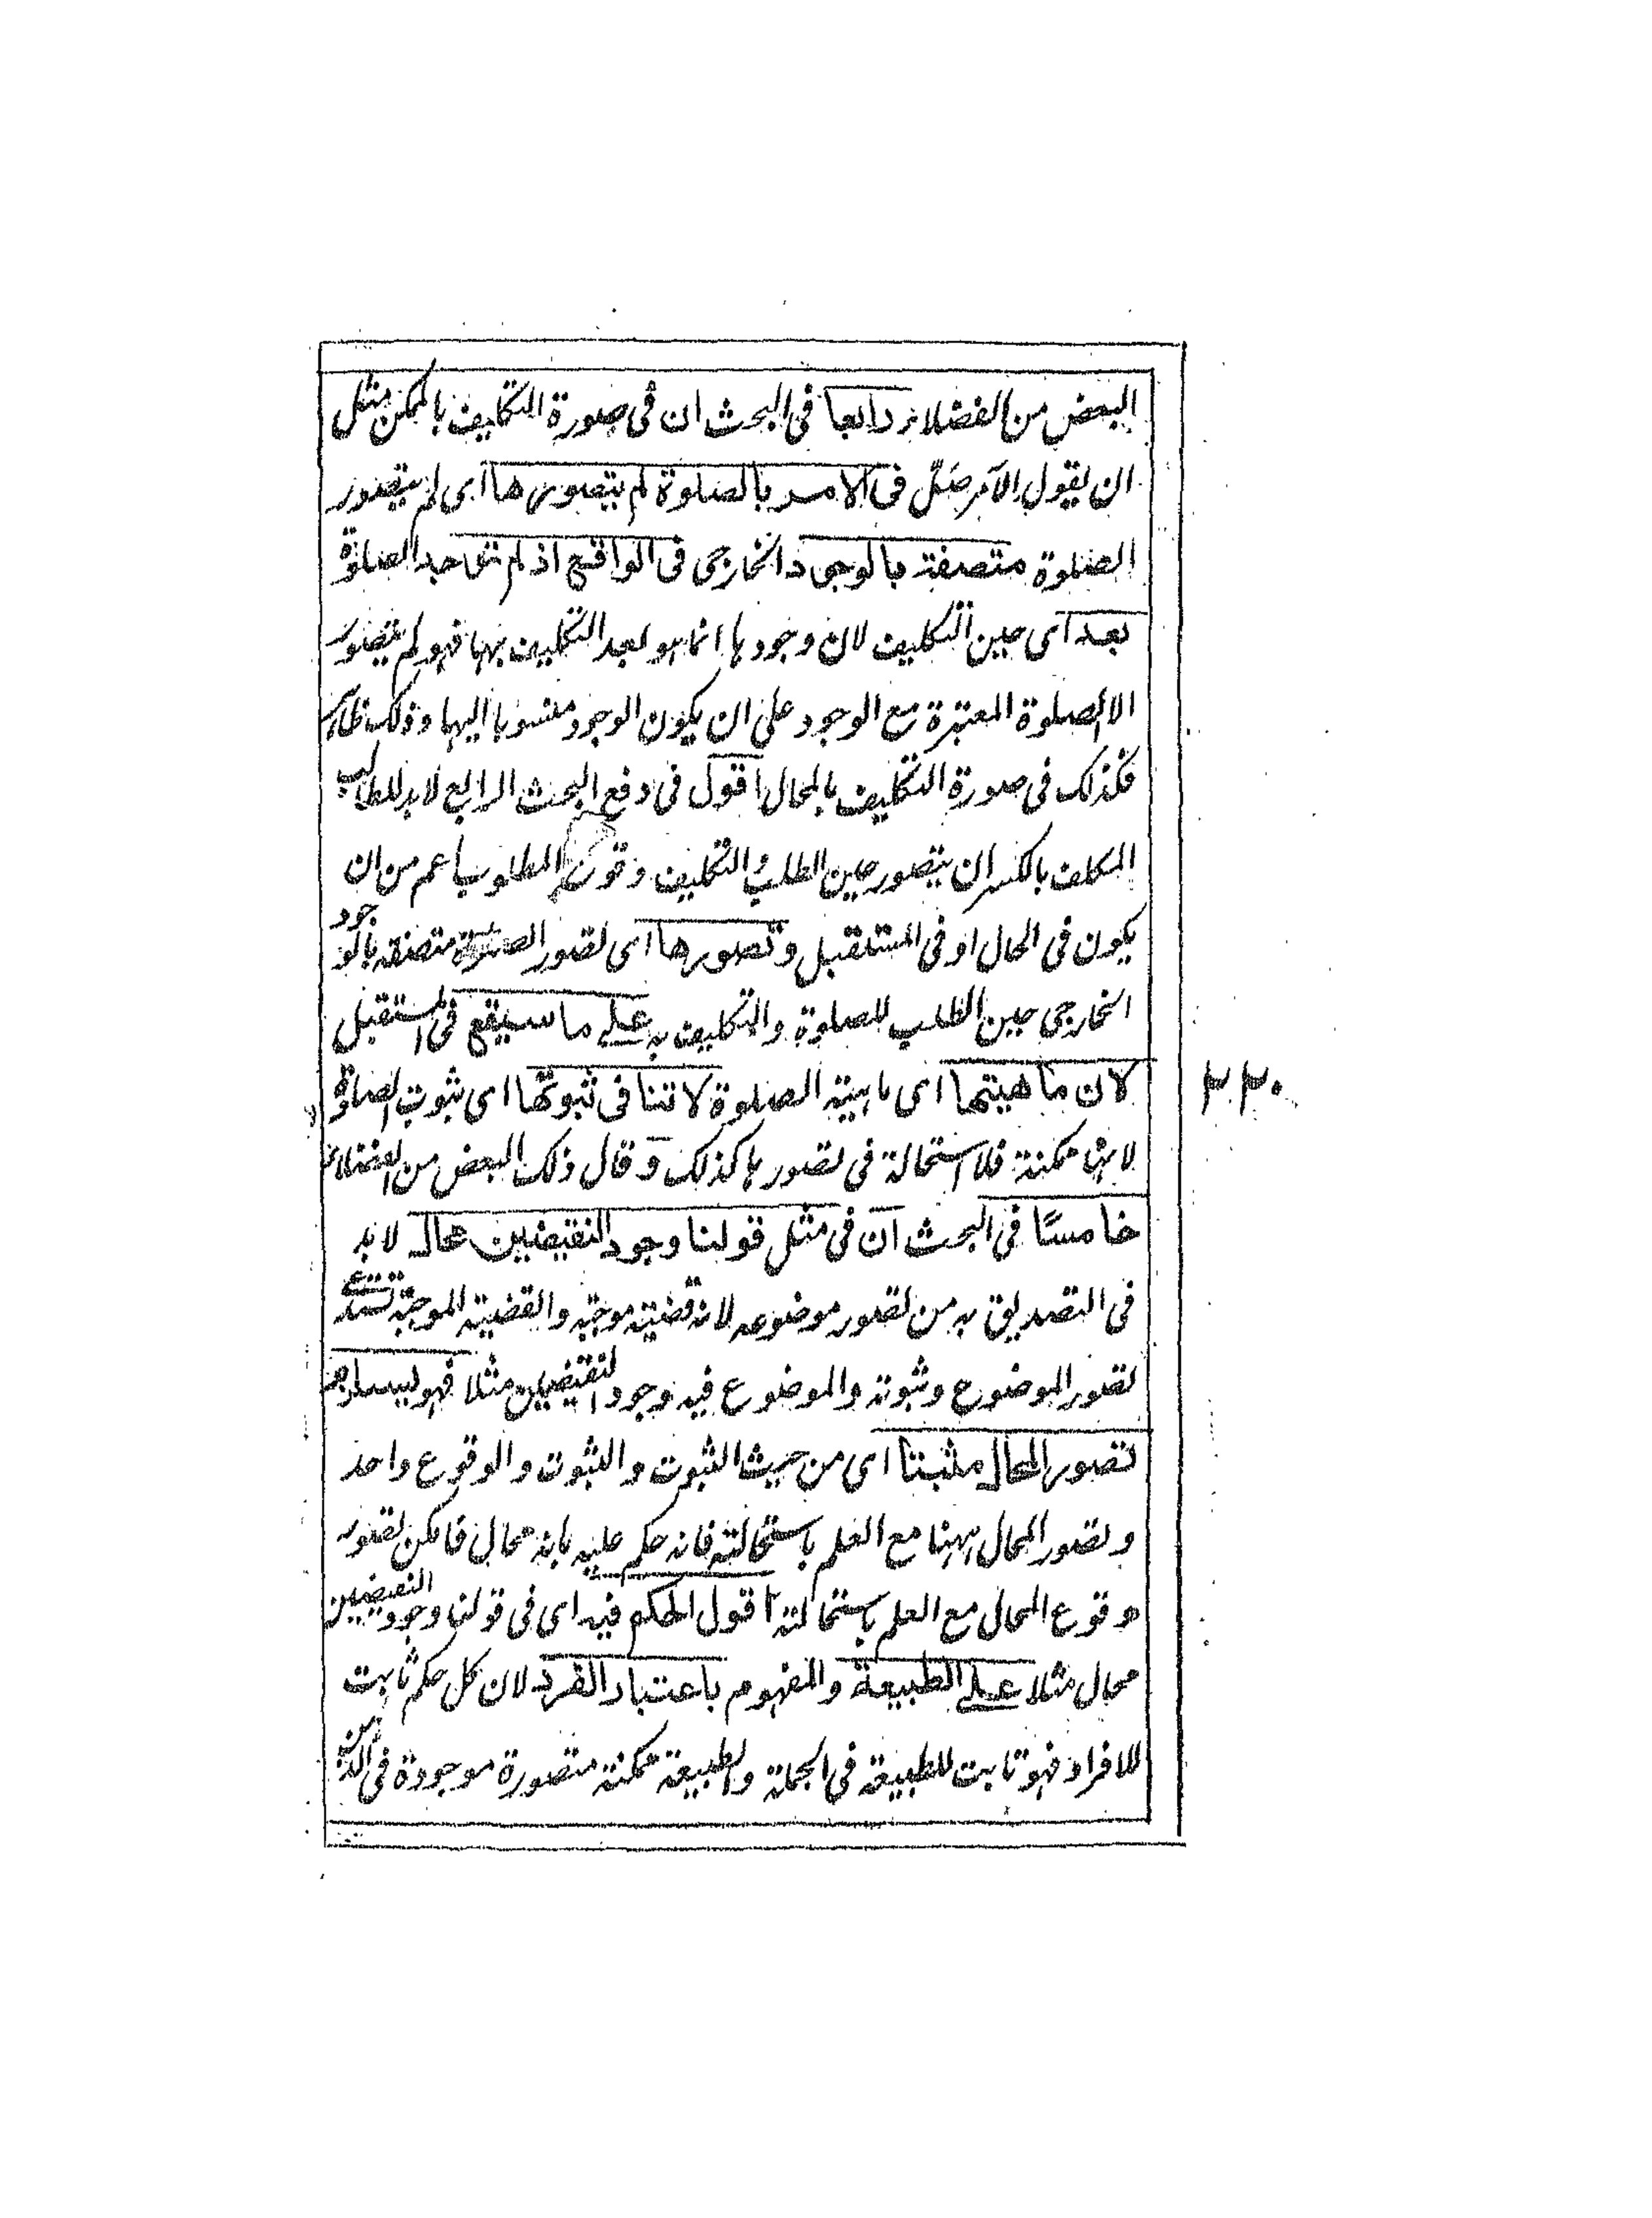 البعض من الفضلاء رابعا فى البحث ان فى صورة التكليف بالممكن مثل
ان يقول الآمر صَلِّ فى الامر بالصلوة لم يتصورها اى لم يتصور
الصلوة متصفة بالوجود الخارجى فى الواقع اذ لم توجد الصلوة
بعد اى حين التكليف لان وجودها انما هو بعد التكليف بها فهو لم يتصور
الا الصلوة المعتبرة مع الوجود على ان يكون الوجود منسوبا اليها وذلك ظاهر
فكذلك فى صورة التكليف بالمحال اقول فى دفع البحث الرابع لابد للطالب
المكلف بالكسر ان يتصور حين الطلب والتكليف وقوع المطلوب اعم من ان
يكون فى الحال او فى المستقبل وتصورها اى تصور الصلوة متصفة بالوجود
الخارجى حين الطلب للصلوة والتكليف به على ما سيقع فى المستقبل
لان ماهيتها اى ماهية الصلوة لا تنافى ثبوتها اى ثبوت الصلوة
٣٣٠
لانها ممكنة فلا استحالة فى تصورها كذلك وقال ذلك البعض من الفضلاء
خامسًا فى البحث ان فى مثل قولنا وجود النقيضين محال لابد
فى التصديق به من تصور موضوعه لانه قضية موجبة والقضية الموجبة تستدعى
تصور الموضوع وثبوته والموضوع فيه وجود النقيضين مثلا فهو يستلزم
تصور المحال مثبتا اى من حيث الثبوت والثبوت والوقوع واحد
وتصور المحال ههنا مع العلم باستحالته فانه حكم عليه بانه محال فامكن تصور
وقوع المحال مع العلم باستحالته اقول الحكم فيه اى فى قولنا وجود النقيضين
محال مثلا على الطبيعة والمفهوم باعتبار الفرد لان كل حكم ثابت
للافراد فهو ثابت للطبيعة فى الجملة والطبيعة ممكنة متصورة موجودة فى الذهن